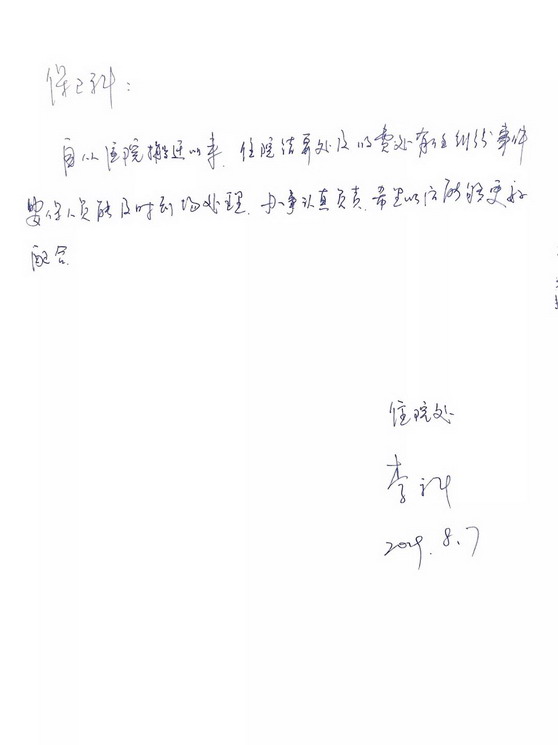 保卫科：
自从医院搬迁以来，住院结算处及收费处有任纠纷事件
安保人员能及时到场处理，办事认真负责，希望以后能够更好
配合
住院处
李
2019.8.7